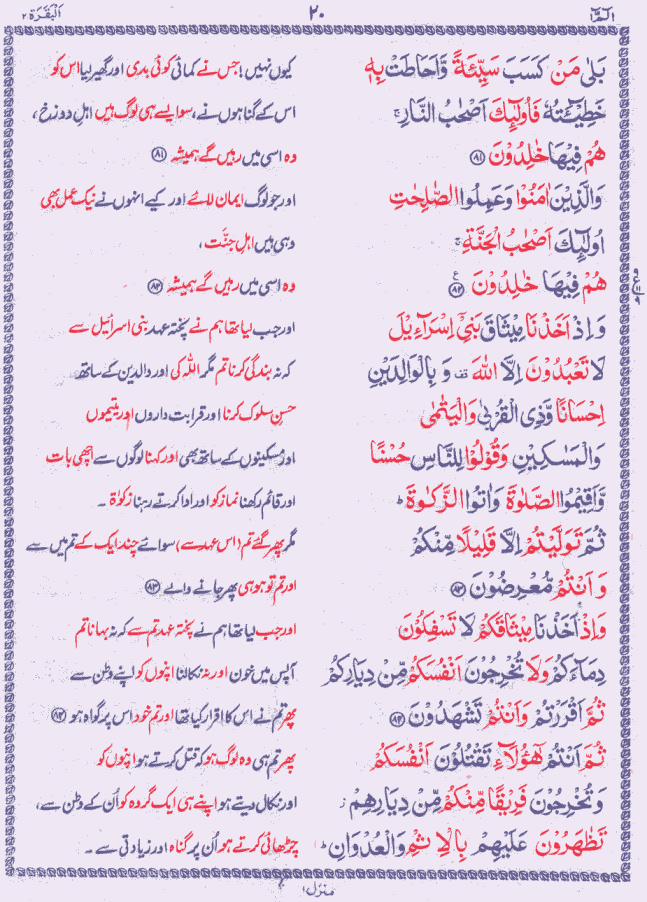 الٓمّٓ ١
٢٠
اَلْبَقَرَة ٢
بَلٰی مَنْ كَسَبَ سَیِّئَةً وَّاَحَاطَتْ بِهٖ
کیوں نہیں! جس نے کمائی کوئی بدی اور گھیر لیا اس کو
خَطِیْٓـَٔتُهٗ فَاُولٰٓىِٕكَ اَصْحٰبُ النَّارِ ۚ
اس کے گناہوں نے، سو ایسے ہی لوگ ہیں اہلِ دوزخ،
هُمْ فِیْهَا خٰلِدُوْنَ ﴿۸۱﴾
وہ اسی میں رہیں گے ہمیشہ ﴿۸۱﴾
وَالَّذِیْنَ اٰمَنُوْا وَعَمِلُوا الصّٰلِحٰتِ
اور جو لوگ ایمان لائے اور کیے انہوں نے نیک عمل بھی
اُولٰٓىِٕكَ اَصْحٰبُ الْجَنَّةِ ۚ
وہی ہیں اہلِ جنَّت،
هُمْ فِیْهَا خٰلِدُوْنَ ﴿۸۲﴾ ع
وہ اسی میں رہیں گے ہمیشہ ﴿۸۲﴾
وَاِذْ اَخَذْنَا مِیْثَاقَ بَنِیْۤ اِسْرَآءِیْلَ
اور جب لیا تھا ہم نے پختہ عہد بنی اسرائیل سے
لَا تَعْبُدُوْنَ اِلَّا اللّٰهَ قف وَ بِالْوَالِدَیْنِ
کہ نہ بندگی کرنا تم مگر اللہ کی اور والدین کے ساتھ
اِحْسَانًا وَّذِی الْقُرْبٰی وَالْیَتٰمٰی
حسنِ سلوک کرنا اور قرابت داروں اور یتیموں
وَالْمَسٰكِیْنِ وَقُوْلُوْا لِلنَّاسِ حُسْنًا
اور مسکینوں کے ساتھ بھی اور کہنا لوگوں سے اچھی بات
وَّاَقِیْمُوا الصَّلٰوةَ وَاٰتُوا الزَّكٰوةَ ؕ
اور قائم رکھنا نماز کو اور ادا کرتے رہنا زکوٰۃ ۔
ثُمَّ تَوَلَّیْتُمْ اِلَّا قَلِیْلًا مِّنْكُمْ
مگر پھر گئے تم (اس عہد سے) سوائے چند ایک کے تم میں سے
وَ اَنْتُمْ مُّعْرِضُوْنَ ﴿۸۳﴾
اور تم تو ہو ہی پھر جانے والے ﴿۸۳﴾
وَاِذْ اَخَذْنَا مِیْثَاقَكُمْ لَا تَسْفِكُوْنَ
اور جب لیا تھا ہم نے پختہ عہد تم سے کہ نہ بہانا تم
دِمَآءَكُمْ وَلَا تُخْرِجُوْنَ اَنْفُسَكُمْ مِّنْ دِیَارِكُمْ
آپس میں خون اور نہ نکالنا اپنوں کو اپنے وطن سے
ثُمَّ اَقْرَرْتُمْ وَاَنْتُمْ تَشْهَدُوْنَ ﴿۸۴﴾
پھر تم نے اس کا اقرار کیا تھا اور تم خود اس پر گواہ ہو ﴿۸۴﴾
ثُمَّ اَنْتُمْ هٰۤؤُلَآءِ تَقْتُلُوْنَ اَنْفُسَكُمْ
پھر تم ہی وہ لوگ ہو کہ قتل کرتے ہو اپنوں کو
وَتُخْرِجُوْنَ فَرِیْقًا مِّنْكُمْ مِّنْ دِیَارِهِمْ ز
اور نکال دیتے ہو اپنے ہی ایک گروہ کو اُن کے وطن سے،
تَظٰهَرُوْنَ عَلَیْهِمْ بِالْاِثْمِ وَالْعُدْوَانِ ؕ
چڑھائی کرتے ہو اُن پر گناہ اور زیادتی سے ۔
منزل ۱